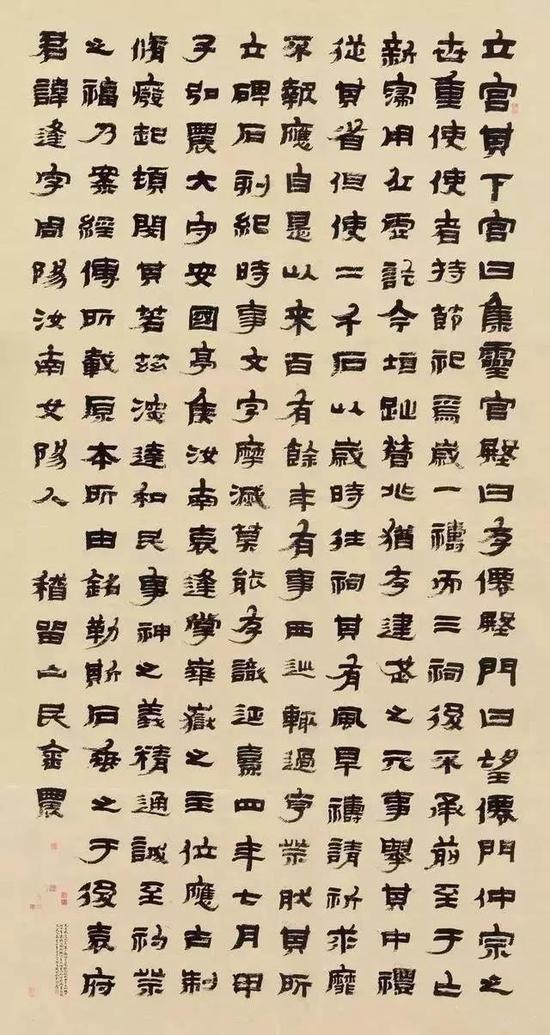 立宮其下宮曰集靈宮殿曰存僊殿門曰望僊門仲宗之
世重使使者持節祀焉歲一禱而三祠後不承前至于亡
新寖用丘虛訖今垣趾營兆猶存建武之元事舉其中禮
從其省但使二千石以歲時往祠其有風旱禱請祈求靡
不報應自是以來百有餘年有事西巡輒過亨祭然其所
立碑石刻紀時事文字摩滅莫能存識延熹四年七月甲
子弘農大守安國亭侯汝南袁逢掌華嶽之主位應古制
脩廢起頓閔其若茲深達和民事神之義精通誠至礿祭
之福乃案經傳所載原本所由銘勒斯石垂之于後袁府
君諱逢字周陽汝南女陽人 稽留山民金農